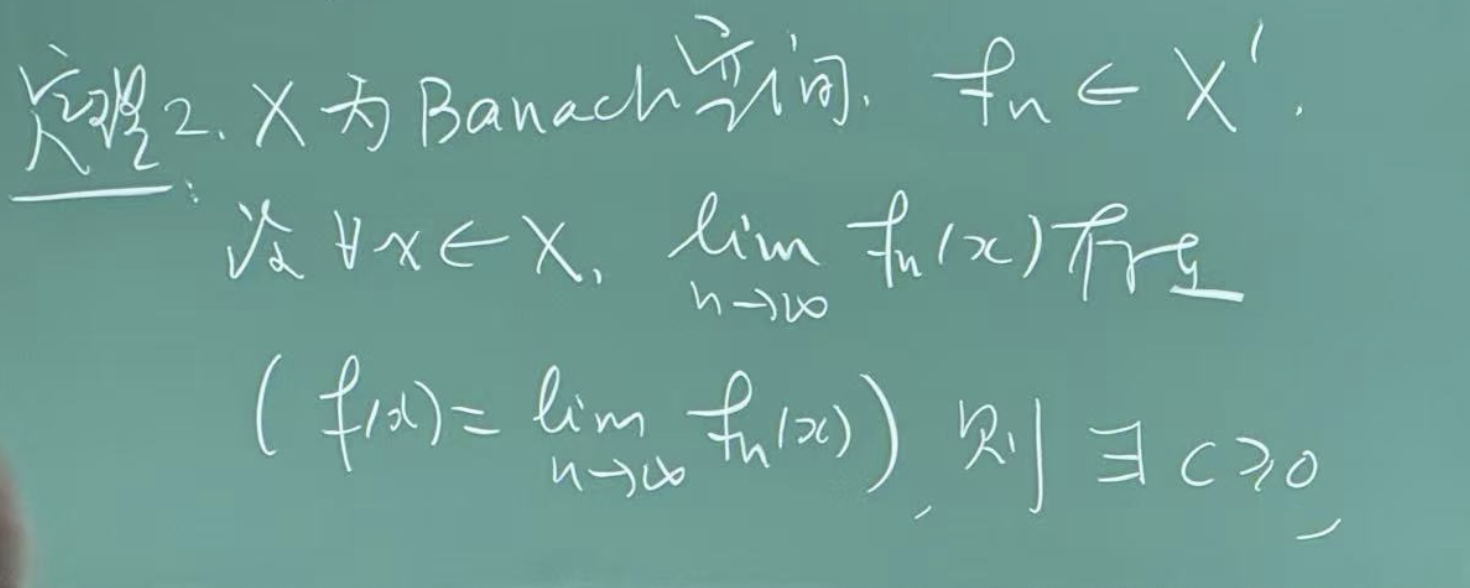 定理2. X为Banach空间. fn ∈ X'.
设 ∀x∈X, lim fn(x)存在
n→∞
(f(x)= lim fn(x)), 则 ∃ c≥0,
n→∞